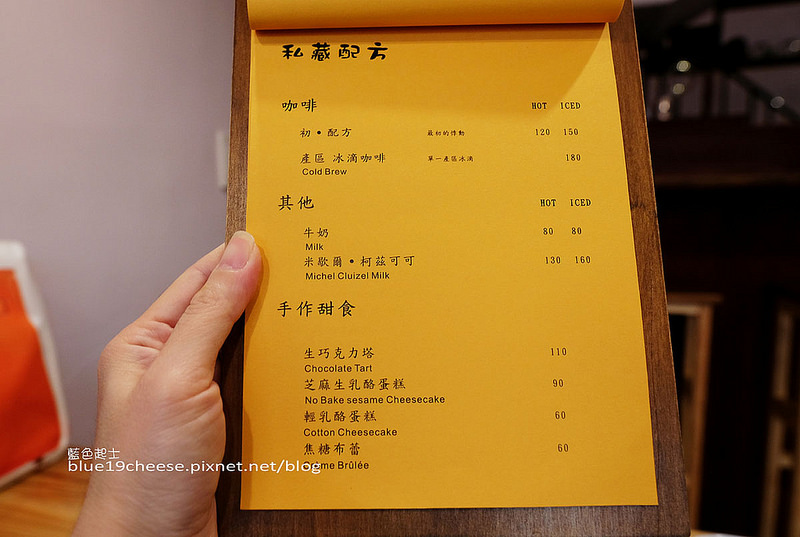 私藏配方
咖啡 HOT ICED
初•配方 最初的悸動 120 150
產區 冰滴咖啡 單一產區冰滴 180
Cold Brew
其他 HOT ICED
牛奶 80 80
Milk
米歇爾•柯茲可可 130 160
Michel Cluizel Milk
手作甜食
生巧克力塔 110
Chocolate Tart
芝麻生乳酪蛋糕 90
No Bake sesame Cheesecake
輕乳酪蛋糕 60
Cotton Cheesecake
焦糖布蕾 60
Brûlée
藍色起士
blue19cheese.pixnet.net/blog